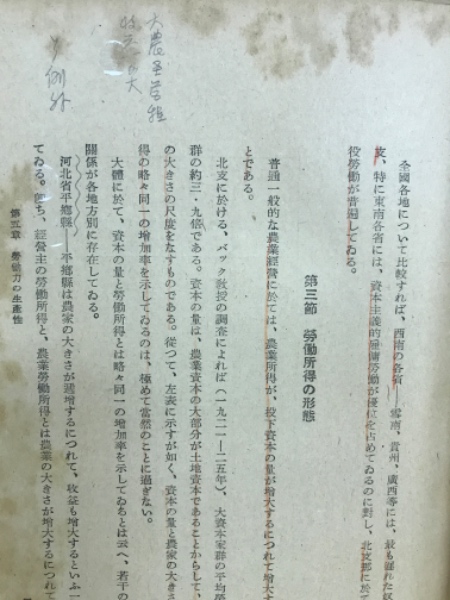 例外
全國各地について比較すれば、西南の各省――雲南、貴州、廣西等には、最も遅れた
支、特に東南各省には、資本主義的雇傭勞働が優位を占めてゐるのに對し、北支那に於て
役勞働が普遍してゐる。
第三節 勞働所得の形態
普通一般的な農業經營に於ては、農業所得が、投下資本の量が增大するにつれて增大す
とである。
北支に於ける、バック敎授の調査によれば(一九二一―二五年)、大資本家群の平均
群の約三・九倍である。資本の量は、農業資本の大部分が土地資本であることからして、
の大きさの尺度をなすものである。從つて、左表に示すが如く、資本の量と農家の大きさ
得の略々同一の增加率を示してゐるのは、極めて當然のことに過ぎない。
大體に於て、資本の量と勞働所得とは略々同一の增加率を示してゐるとは云へ、若干の
關係が各地方別に存在してゐる。
河北省平鄉縣 平鄉縣は農家の大きさが遞增するにつれて、收益も增大するといふ一
てゐる。卽ち、經營主の勞働所得と、農業勞働所得とは農業の大きさが增大するにつれて
第五章 勞働力の生產性